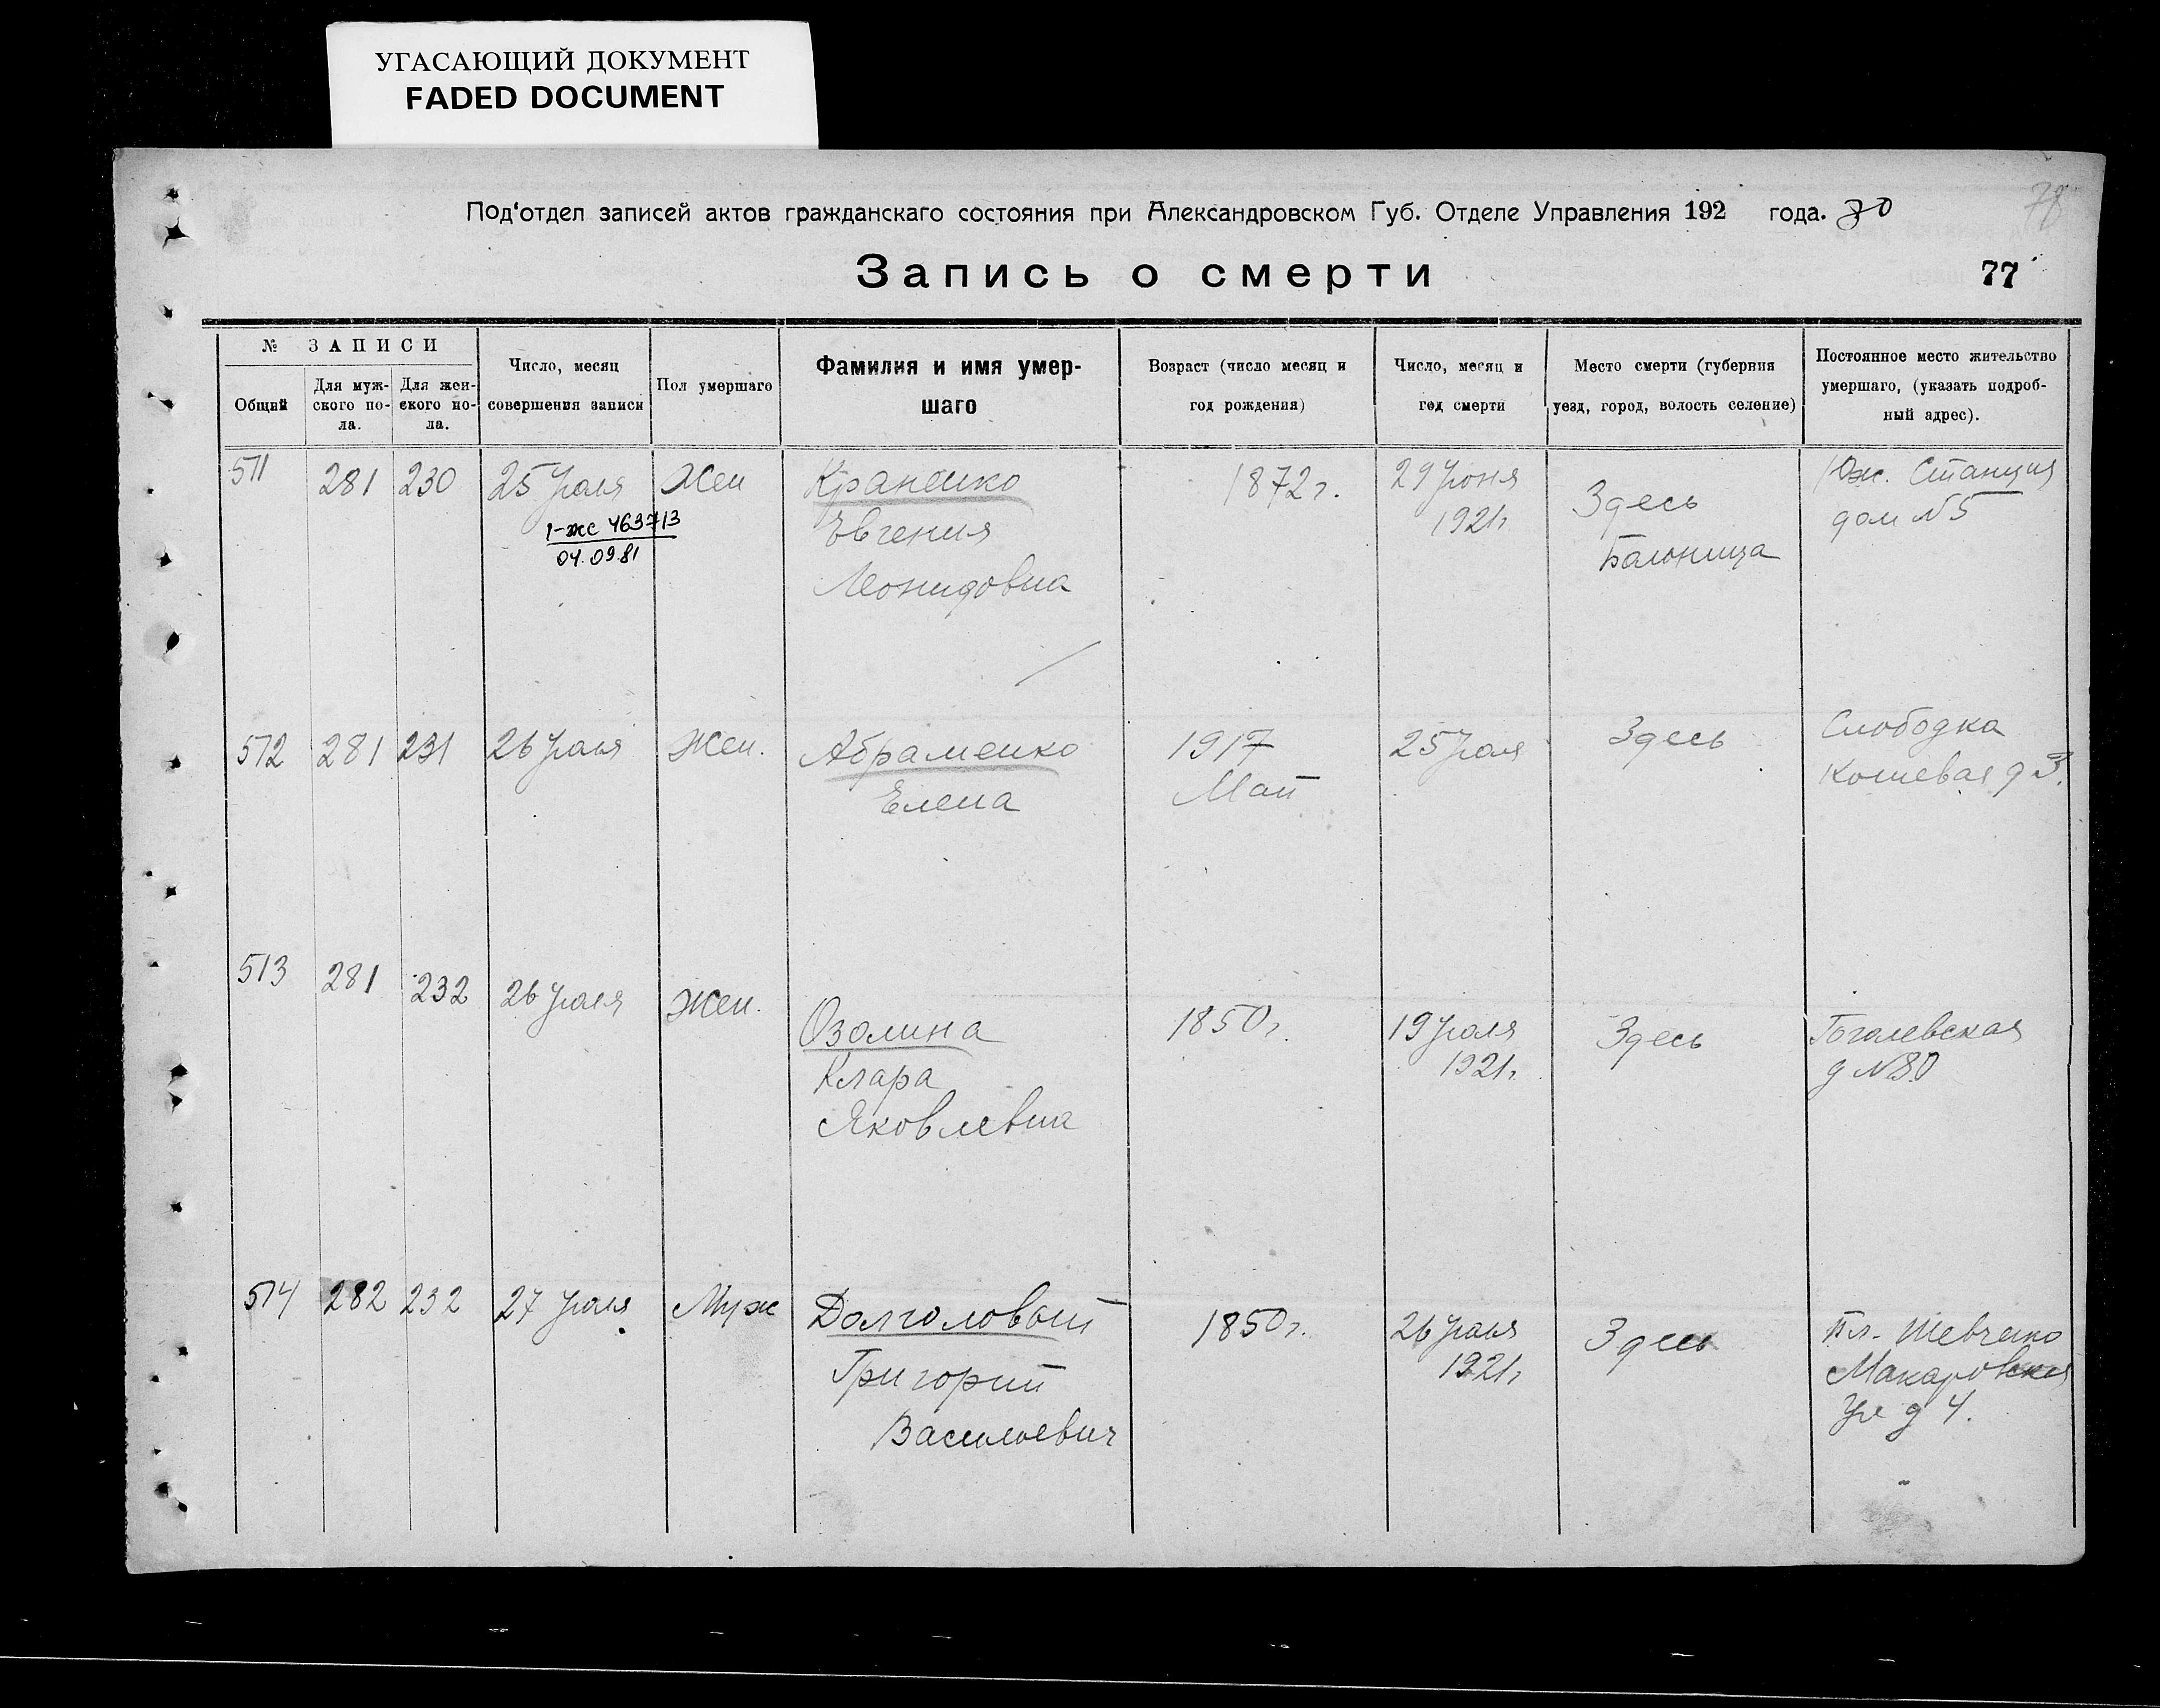 УГАСАЮЩИЙ ДОКУМЕНТ
FADED DOCUMENT
78
Под'отдел записей актов гражданскаго состояния при Александровском Губ. Отделе Управления 192 года.
Запись о смерти
77
№ ЗАПИСИ
Общий
Для муж-
ского по-
ла.
Для жен-
ского по-
ла.
Число, месяц
совершения записи
Пол умершаго
Фамилия и имя умер-
шаго
Возраст (число месяц и
год рождения)
Число, месяц и
год смерти
Место смерти (губерния
уезд, город, волость селение)
Постоянное место жительство
умершаго, (указать подроб-
ный адрес).
511
281
230
25 Июля
1-жс 463713
04.09.81
Жен
Краненко
Евгения
Леонидовна
1872 г.
29 Июня
1921 г.
Здесь
Больница
Юж. Станция
дом №5
512
281
231
26 Июля
Жен.
Абраменко
Елена
1917
Май
25 Июля
Здесь
Слободка
Кошевая д 3.
513
281
232
26 Июля
Жен.
Озолина
Клара
Яковлевна
1850 г.
19 Июля
1921 г.
Здесь
Гоголевская
д №80
514
282
232
27 Июля
Муж
Долголовый
Григорий
Васильевич
1850 г.
26 Июля
1921 г.
Здесь
пл. Шевченко
Макаровская
ул д 4.